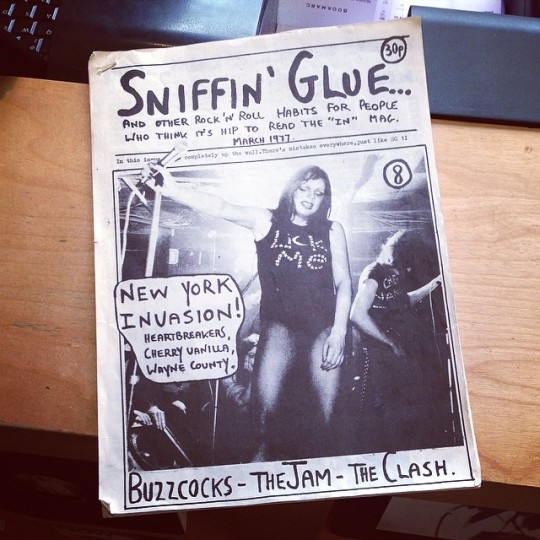 BOOKMARC
30p
SNIFFIN' GLUE...
AND OTHER ROCK 'N' ROLL HABITS FOR PEOPLE
WHO THINK IT'S HIP TO READ THE "IN" MAG.
MARCH 1977.
In this completely up the wall.There's mistakes everywhere,just like SG 1!
8
LICK
ME
NEW YORK
INVASION!
HEARTBREAKERS,
CHERRY VANILLA,
WAYNE COUNTY.
BUZZCOCKS - THE JAM - THE CLASH.